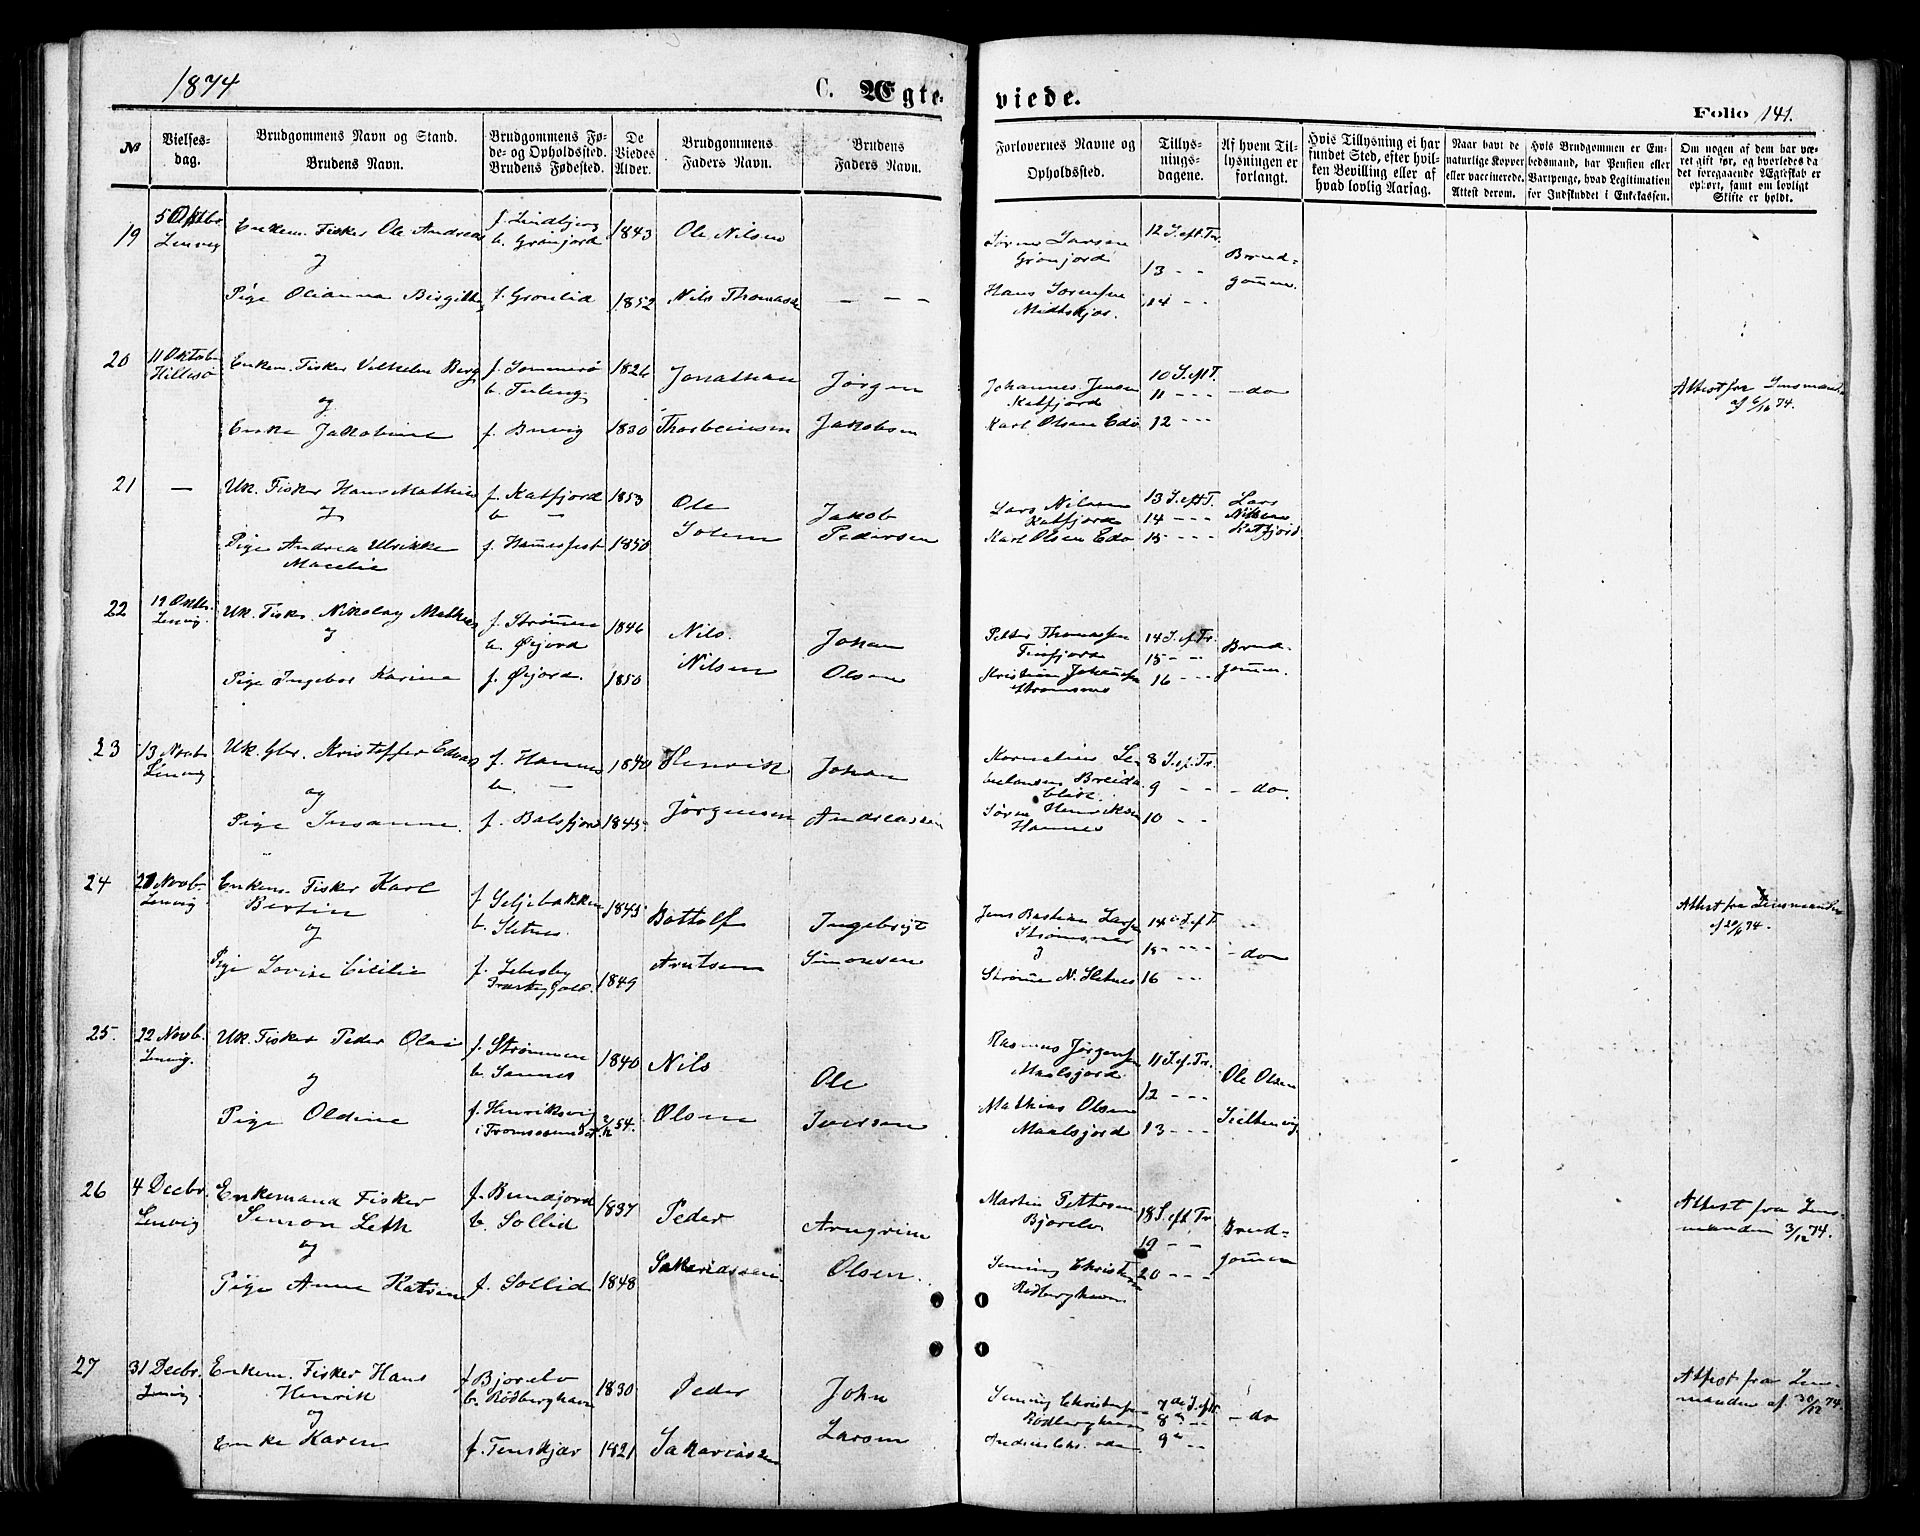 1874
C. Ægte-
viede.
Folio 141.
№
Vielses-
dag.
Brudgommens Navn og Stand.
Brudens Navn.
Brudgommens Fø-
de- og Opholdssted.
Brudens Fødested.
De
Viedes
Alder.
Brudgommens
Faders Navn.
Brudens
Faders Navn.
Forlovernes Navne og
Opholdssted.
Tillys-
nings-
dagene.
Af hvem Til-
lysningen er
forlangt.
Hvis Tillysning ei har
fundet Sted, efter hvil-
ken Bevilling eller af
hvad lovlig Aarsag.
Naar havt de
naturlige Kopper
eller vaccinerede.
Attest derom.
Hvis Brudgommen er Em-
bedsmand, har Pension eller
Vartpenge, hvad Legitimation
for Indskuddet i Enkekassen.
Om nogen af dem har væ-
ret gift før, og hvorledes da
det foregaaende Ægteskab er
ophørt, samt om lovligt
Skifte er holdt.
19
5 Oktbr
Lenvig
Enkem. Fisker Ole Andreas
og
Pige Olianna Birgitte
f. Lindbjerg
b. Grønjord
f. Grønlid
1843
1852
Ole Nilsen
Nils Thomassen
— — —
Søren Larsen
Grønjord
Hans Sørensen
Midtskjos.
12 S. eft. Tr.
13 - -
14 - -
Brud-
gommen.
20
11 Oktob
Hillesø
Enkem. Fisker Vilhelm Berg
og
Enke Jakobine
f. Sommerø
b. Tuling
f. Buvig
1826
1830
Jonathan
Thorbeinsen
Jørgen
Jakobsen
Johannes Jensen
Katfjord
Karl Olsen Edø
10 S. eft T.
11 - - -
12 - - -
- do
Attest fra Lensmanden
af 6/10 74.
21
—
Uk. Fisker Hans Mathias
og
Pige Andrea Ulrikke
Marelie
f. Katfjord
b —
f. Hammerfest
1853
1850
Ole
Solem
Jakob
Pedersen
Lars Nilsen
Katfjord
Karl Olsen Edø
13 S. eft T.
14 - - -
15 - - -
Lars
Nilsen
Katfjord
22
19 Oktbr.
Lenvig.
Uk. Fisker Nikolay Mathias
og
Pige Ingebor Karina
f. Strømmen
b. Øijord
f. Øijord
1846
1850
Nils
Nilsen
Johan
Olsen
Petter Thomassen
Finfjord
Kristian Johansen
Strømsnes
14 S. ef. Tr.
15 - -
16 - - -
Brud-
gommen.
23
13 Novb
Lenvig
Uk. Gbr. Kristoffer Edvard
og
Pige Susanne.
f. Hannes
b. —
f. Balsfjord
1840
1845
Henrik
Jørgensen
Johan
Andreassen
Kornelius
Breida-
blik.
Søren Henriksen
Hannes
8 S. ef. Tr.
9 - -
10 - -
- do.
24
21 Novb.
Lenvig
Enkem. Fisker Karl
Bertin
og
Pige Lovise Cicilie
f Seljebakken
b. Sletnes
f. Lebesby
Præstegjeld.
1845
1849
Bottolf
Arntsen
Ingebrigt
Simonsen
Jens Bastian Larsen
Strømsnes
og
Strømme N. Sletnes
14 S. eft T.
15 - - -
16 - -
- do
Attest fra Lensmanden
af 20/11 74.
25.
22 Novb.
Lenvig.
Uk. Fisker Peder Olai
og
Pige Oldine
f. Strømmen
b. Sannes
f. Henriksvig
i Tromsøsundet
1840
2/12 54.
Nils
Olsen
Ole
Iversen
Rasmus Jørgensen
Maalsjord
Mathias Olsen
Maalsjord
11 S. ef. Tr.
12 - -
13 - - -
Ole Olsen
Sultenvig
26
4 Decbr.
Lenvig
Enkemand Fisker
Simon Leth
og
Pige Anne Katrine
f. Bundjord
b. Sollid
f. Sollid
1837
1848
Peder
Sakariassen
Arngrim
Olsen.
Martin Pettersen
Bjorelv
Henning Christensen
Rødberghavn
18 S. eft. Tr.
19 - -
20 - - -
Brud-
gommen
Attest fra Lens-
manden 3/12 74.
27
31 Decbr.
Lenvig
Enkem. Fisker Hans
Henrik
og
Enke Karen
f Bjorelv
b. Rødberghavn
f. Tenskjær
1830
1821
Peder
Sakariassen
John
Larsen
Henning Christensen
Rødberghavn
7de S. eft T
8de - -
9de - -
- do
Attest fra Lens-
manden af 30/12 74.